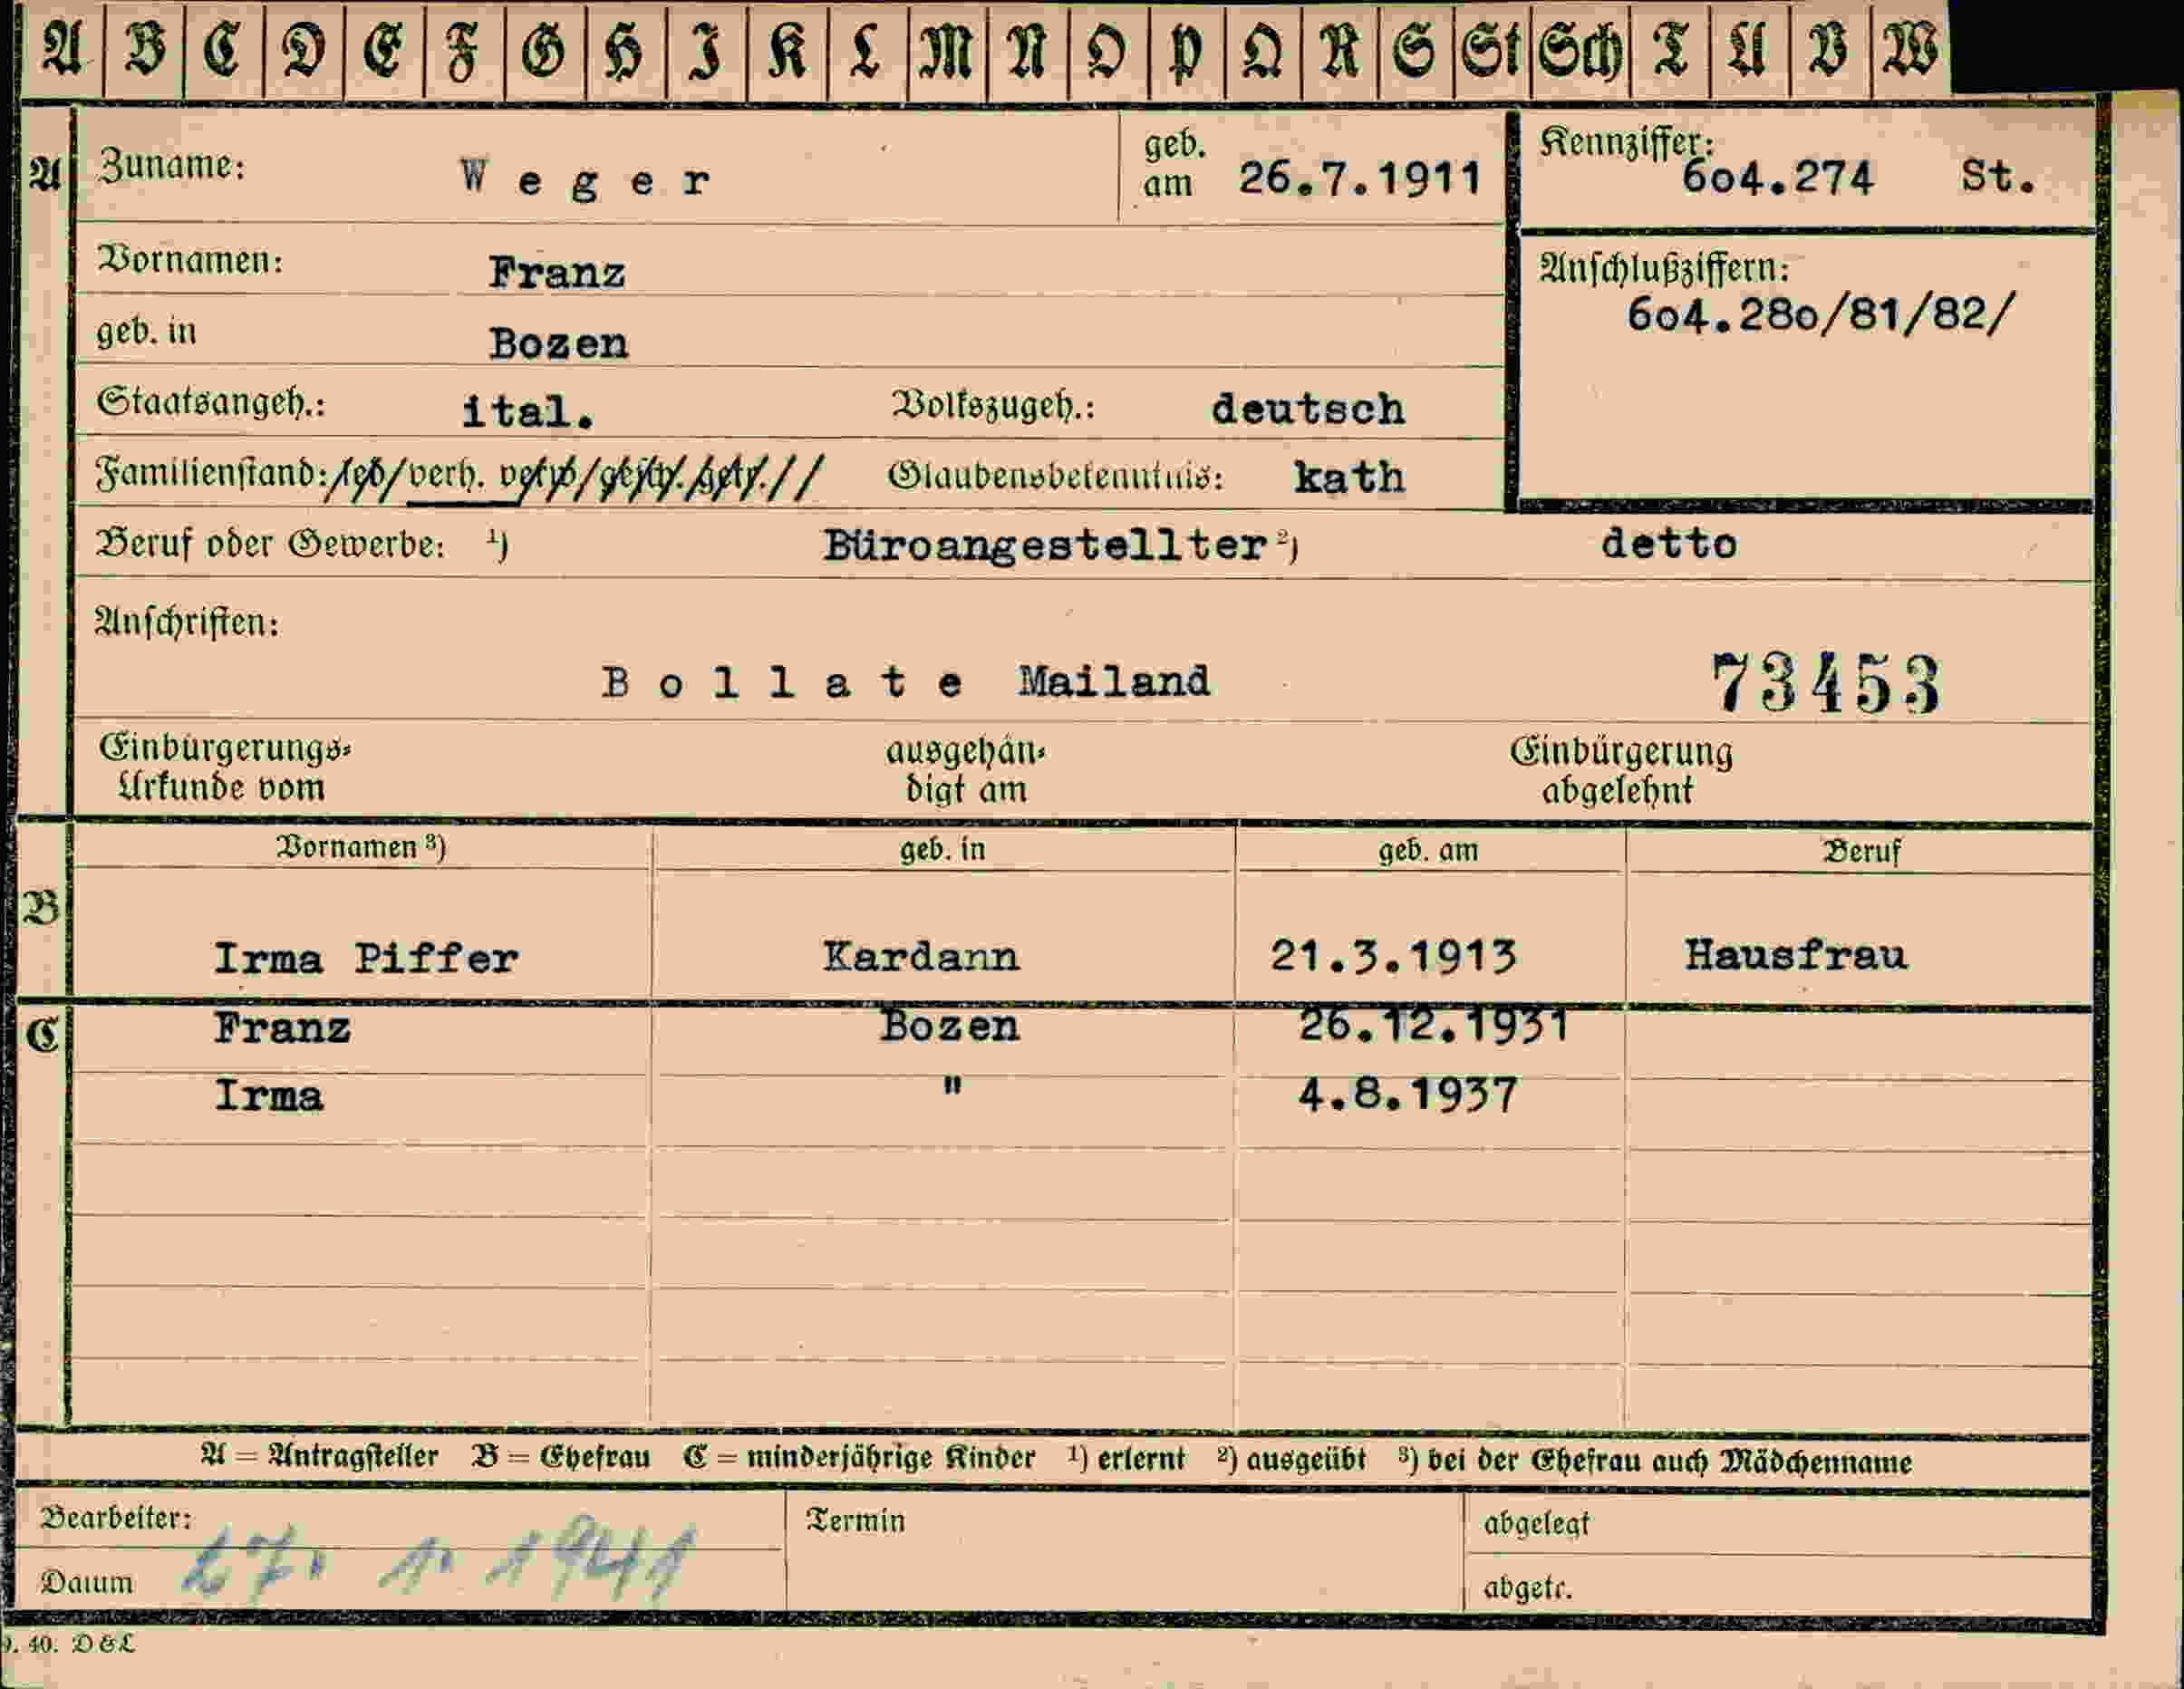 A B C D E F G H I K L M N O P Q R S St Sch T U V W
A Zuname: Weger geb. am 26.7.1911 Kennziffer: 604.274 St.
Vornamen: Franz Anschlußziffern:
604.280/81/82/
geb. in Bozen
Staatsangeh.: ital. Volkszugeh.: deutsch
Familienstand: led/verh. verw/gesch. Glaubensbekenntnis: kath
Beruf oder Gewerbe: ¹) Büroangestellter ²) detto
Anschriften:
Bollate Mailand 73453
Einbürgerungs- ausgehän- Einbürgerung
Urkunde vom digt am abgelehnt
B Vornamen ³) geb. in geb. am Beruf
Irma Piffer Kardann 21.3.1913 Hausfrau
C Franz Bozen 26.12.1931
Irma " 4.8.1937
A = Antragsteller B = Ehefrau C = minderjährige Kinder ¹) erlernt ²) ausgeübt ³) bei der Ehefrau auch Mädchenname
Bearbeiter: Termin abgelegt
Datum 27. 1. 1941 abgetr.
9. 40. D&L